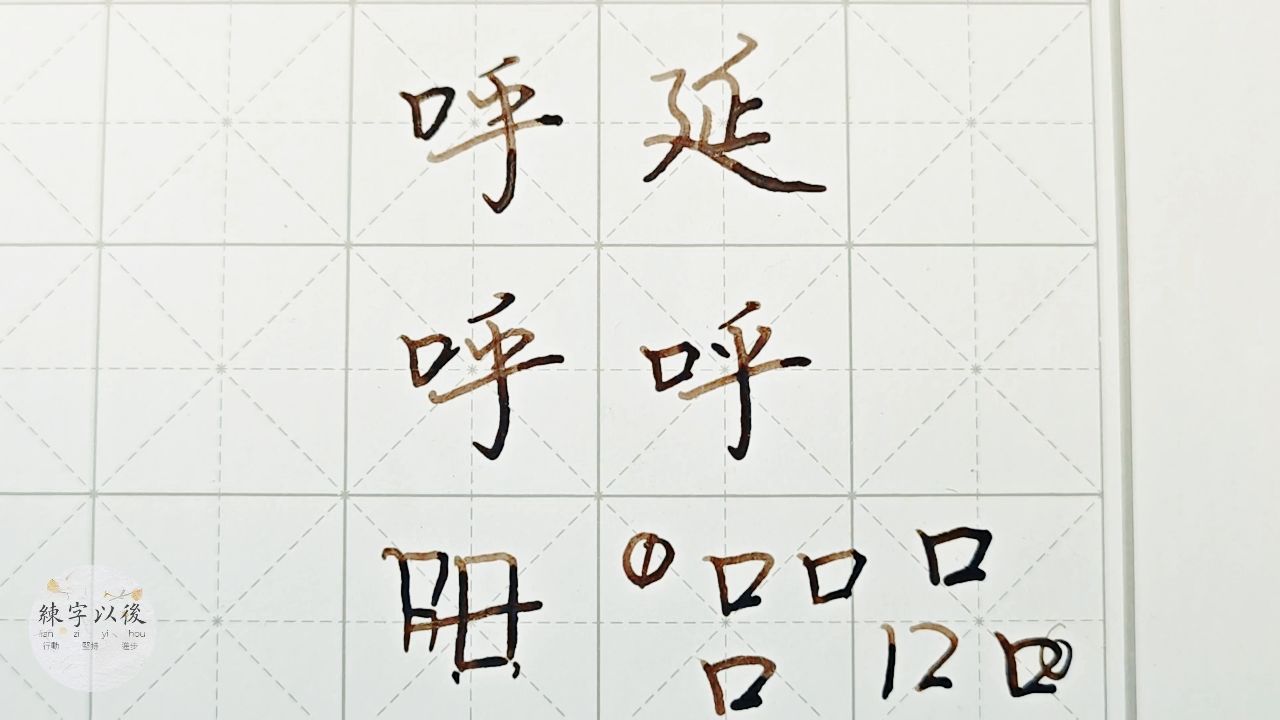 呼延
呼呼
① 口口 口
口 12 口
練字以後
lian zi yi hou
行動 堅持 進步